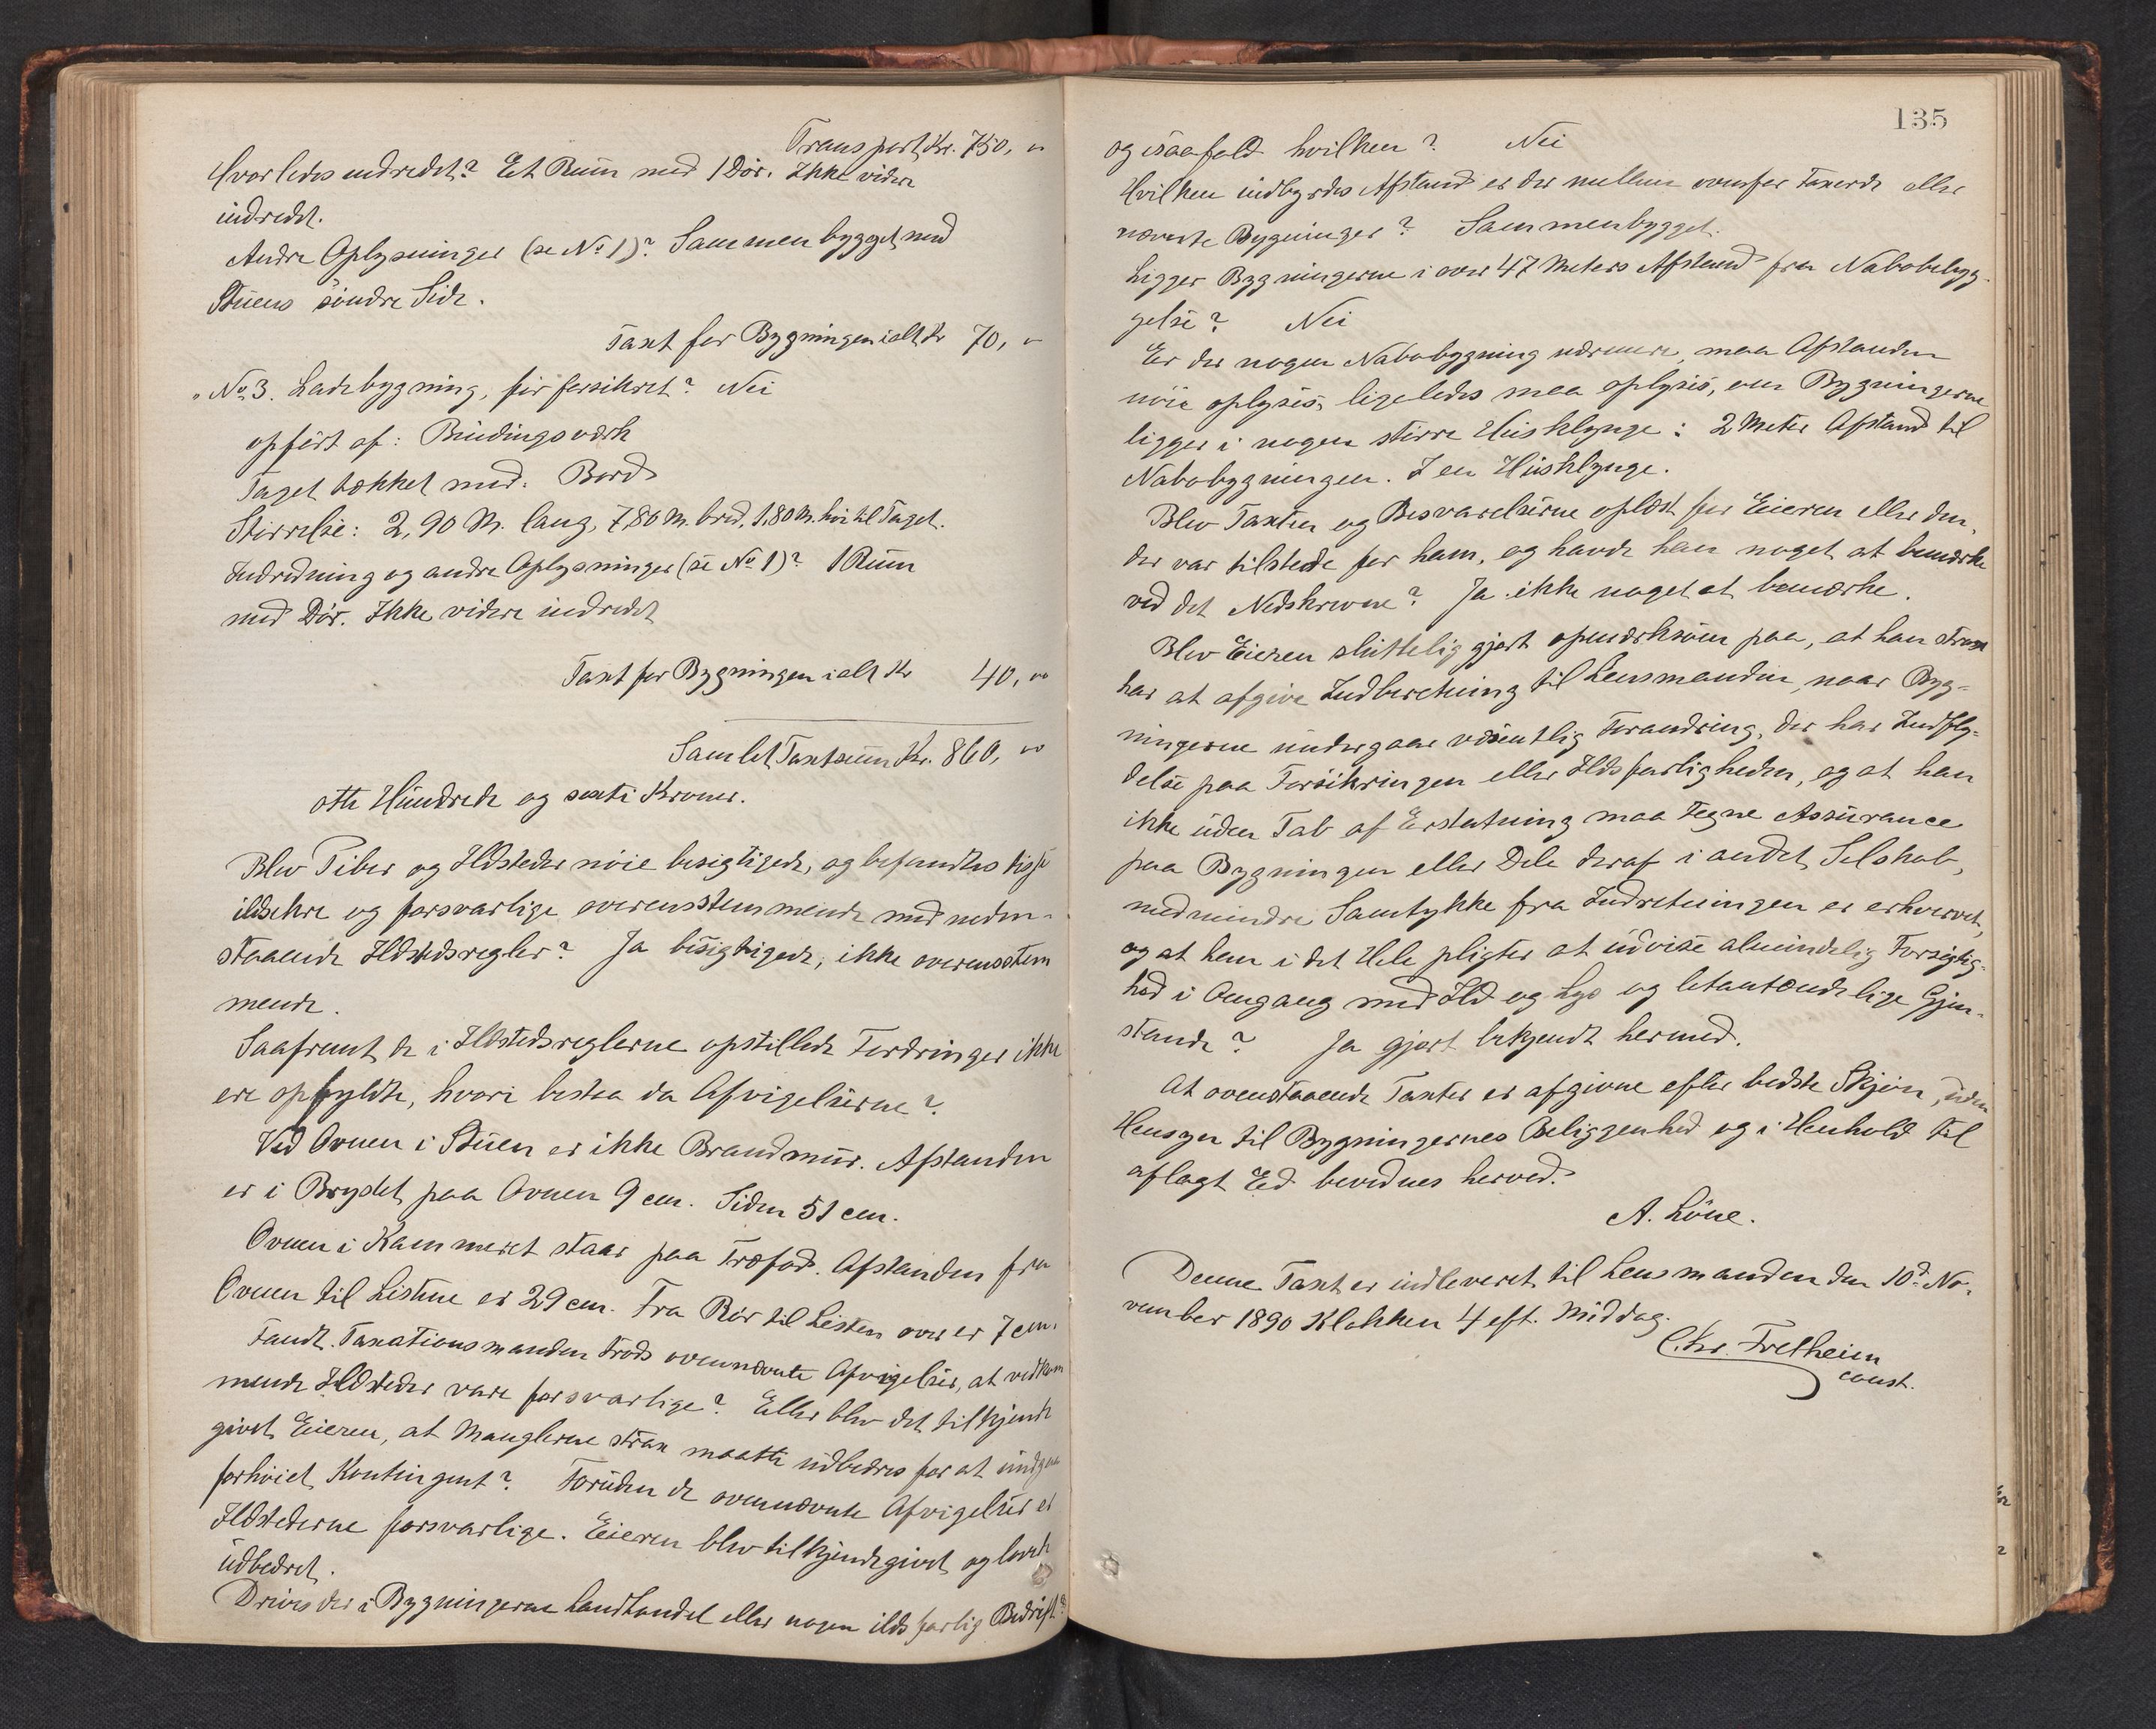 Transport, Kr. 750, "
Hvorledes indredet? Et Rum med 1 Dør. Ikke videre
indredet.
Andre Oplysninger (se No 1)? Sammenbygget med
Stuens søndre Side.
Taxt for Bygningen ialt Kr 70, "
" No 3. Ladebygning, før forsikret? Nei
opført af: Bindingsværk
Taget tækket med: Bord
Størrelse: 2,90 M. lang, 7,80 M. bred, 1,80 M. høi til Taget.
Indredning og andre Oplysninger (se No 1)? 1 Rum
med Dør. Ikke videre indredet
Taxt for Bygningen ialt Kr 40, "
Samlet Taxtsum Kr. 860, "
otte Hundrede og sexti Kroner.
Blev Piber og Ildsteder nøie besigtigede, og befandtes disse
ildsikre og forsvarlige overensstemmende med neden-
staaende Ildstedsregler? Ja besigtigede, ikke overensstem
mende.
Saafremt de i Ildstedsreglerne opstillede Fordringer ikke
ere opfyldte, hvori bestaa da Afvigelserne?
Ved Ovnen i Stuen er ikke Brandmur. Afstanden
er i Brydet paa Ovnen 9 cm. Siden 51 cm.
Ovnen i Kammeret staar paa Træfod. Afstanden fra
Ovnen til Listene er 29 cm. Fra Rør til Listen over er 7 cm.
Fandt Taxationsmanden trods ovennævnte Afvigelser, at vedkom
mende Ildsteder vare forsvarlige? Eller blev det tilkjende
givet Eieren, at Manglerne strax maatte udbedres for at undgaa
forhøiet Kontingent? Foruden de ovennævnte Afvigelser er
Ildstederne forsvarlige. Eieren blev tilkjendegivet og lovede
udbedret.
Drives der i Bygningerne Landhandel eller nogen ildsfarlig Bedrift?
135
og isaafald hvilken? Nei
Hvilken indbyrdes Afstand er der mellem ovenfor taxerede eller
nævnte Bygninger? Sammenbygget.
Ligger Bygningerne i over 47 Meters Afstand fra Nabobebyg-
gelse? Nei
Er der nogen Nabobygning nærmere, maa Afstanden
nøie oplyses, ligeledes maa oplyses, om Bygningerne
ligger i nogen større Husklynge: 2 Meter Afstand til
Nabobygningen. I en Husklynge.
Blev Taxten og Besvarelserne oplæst for Eieren eller den,
der var tilstede for ham, og havde han noget at bemærke
ved det Nedskrevne? Ja ikke noget at bemærke.
Blev Eieren sluttelig gjort opmærksom paa, at han strax
har at afgive Indberetning til Lensmanden, naar Byg-
ningerne undergaar væsentlig Forandring, der har Indfly-
delse paa Forsikringen eller Ildsfarligheden, og at han
ikke uden Tab af Erstatning maa tegne Assurance
paa Bygningen eller Dele deraf i andet Selskab,
medmindre Samtykke fra Indretningen er erhvervet,
og at han i det Hele pligter at udvise almindelig Forsigtig-
hed i Omgang med Ild og Lys og letantændelige Gjen-
stande? Ja gjort bekjendt hermed.
At ovenstaaende Taxter er afgivne efter bedste Skjøn, uden
Hensyn til Bygningernes Beliggenhed og i Henhold til
aflagt Ed bevidnes herved.
A. Løne.
Denne Taxt er indleveret til Lensmanden den 10d No-
vember 1890 Klokken 4 eft. Middag.
Chr. Fretheim
const.